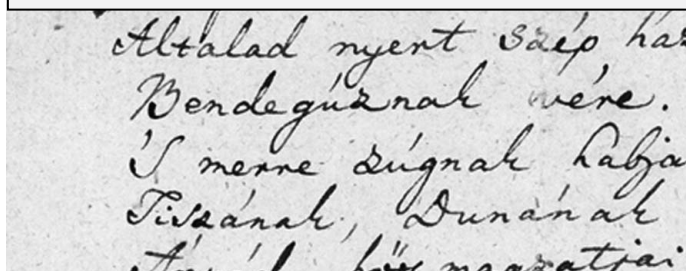 Általad nyert szép haz
Bendegúznak vére.
'S merre zúgnak habja
Tiszának, Dunának
magzatjai